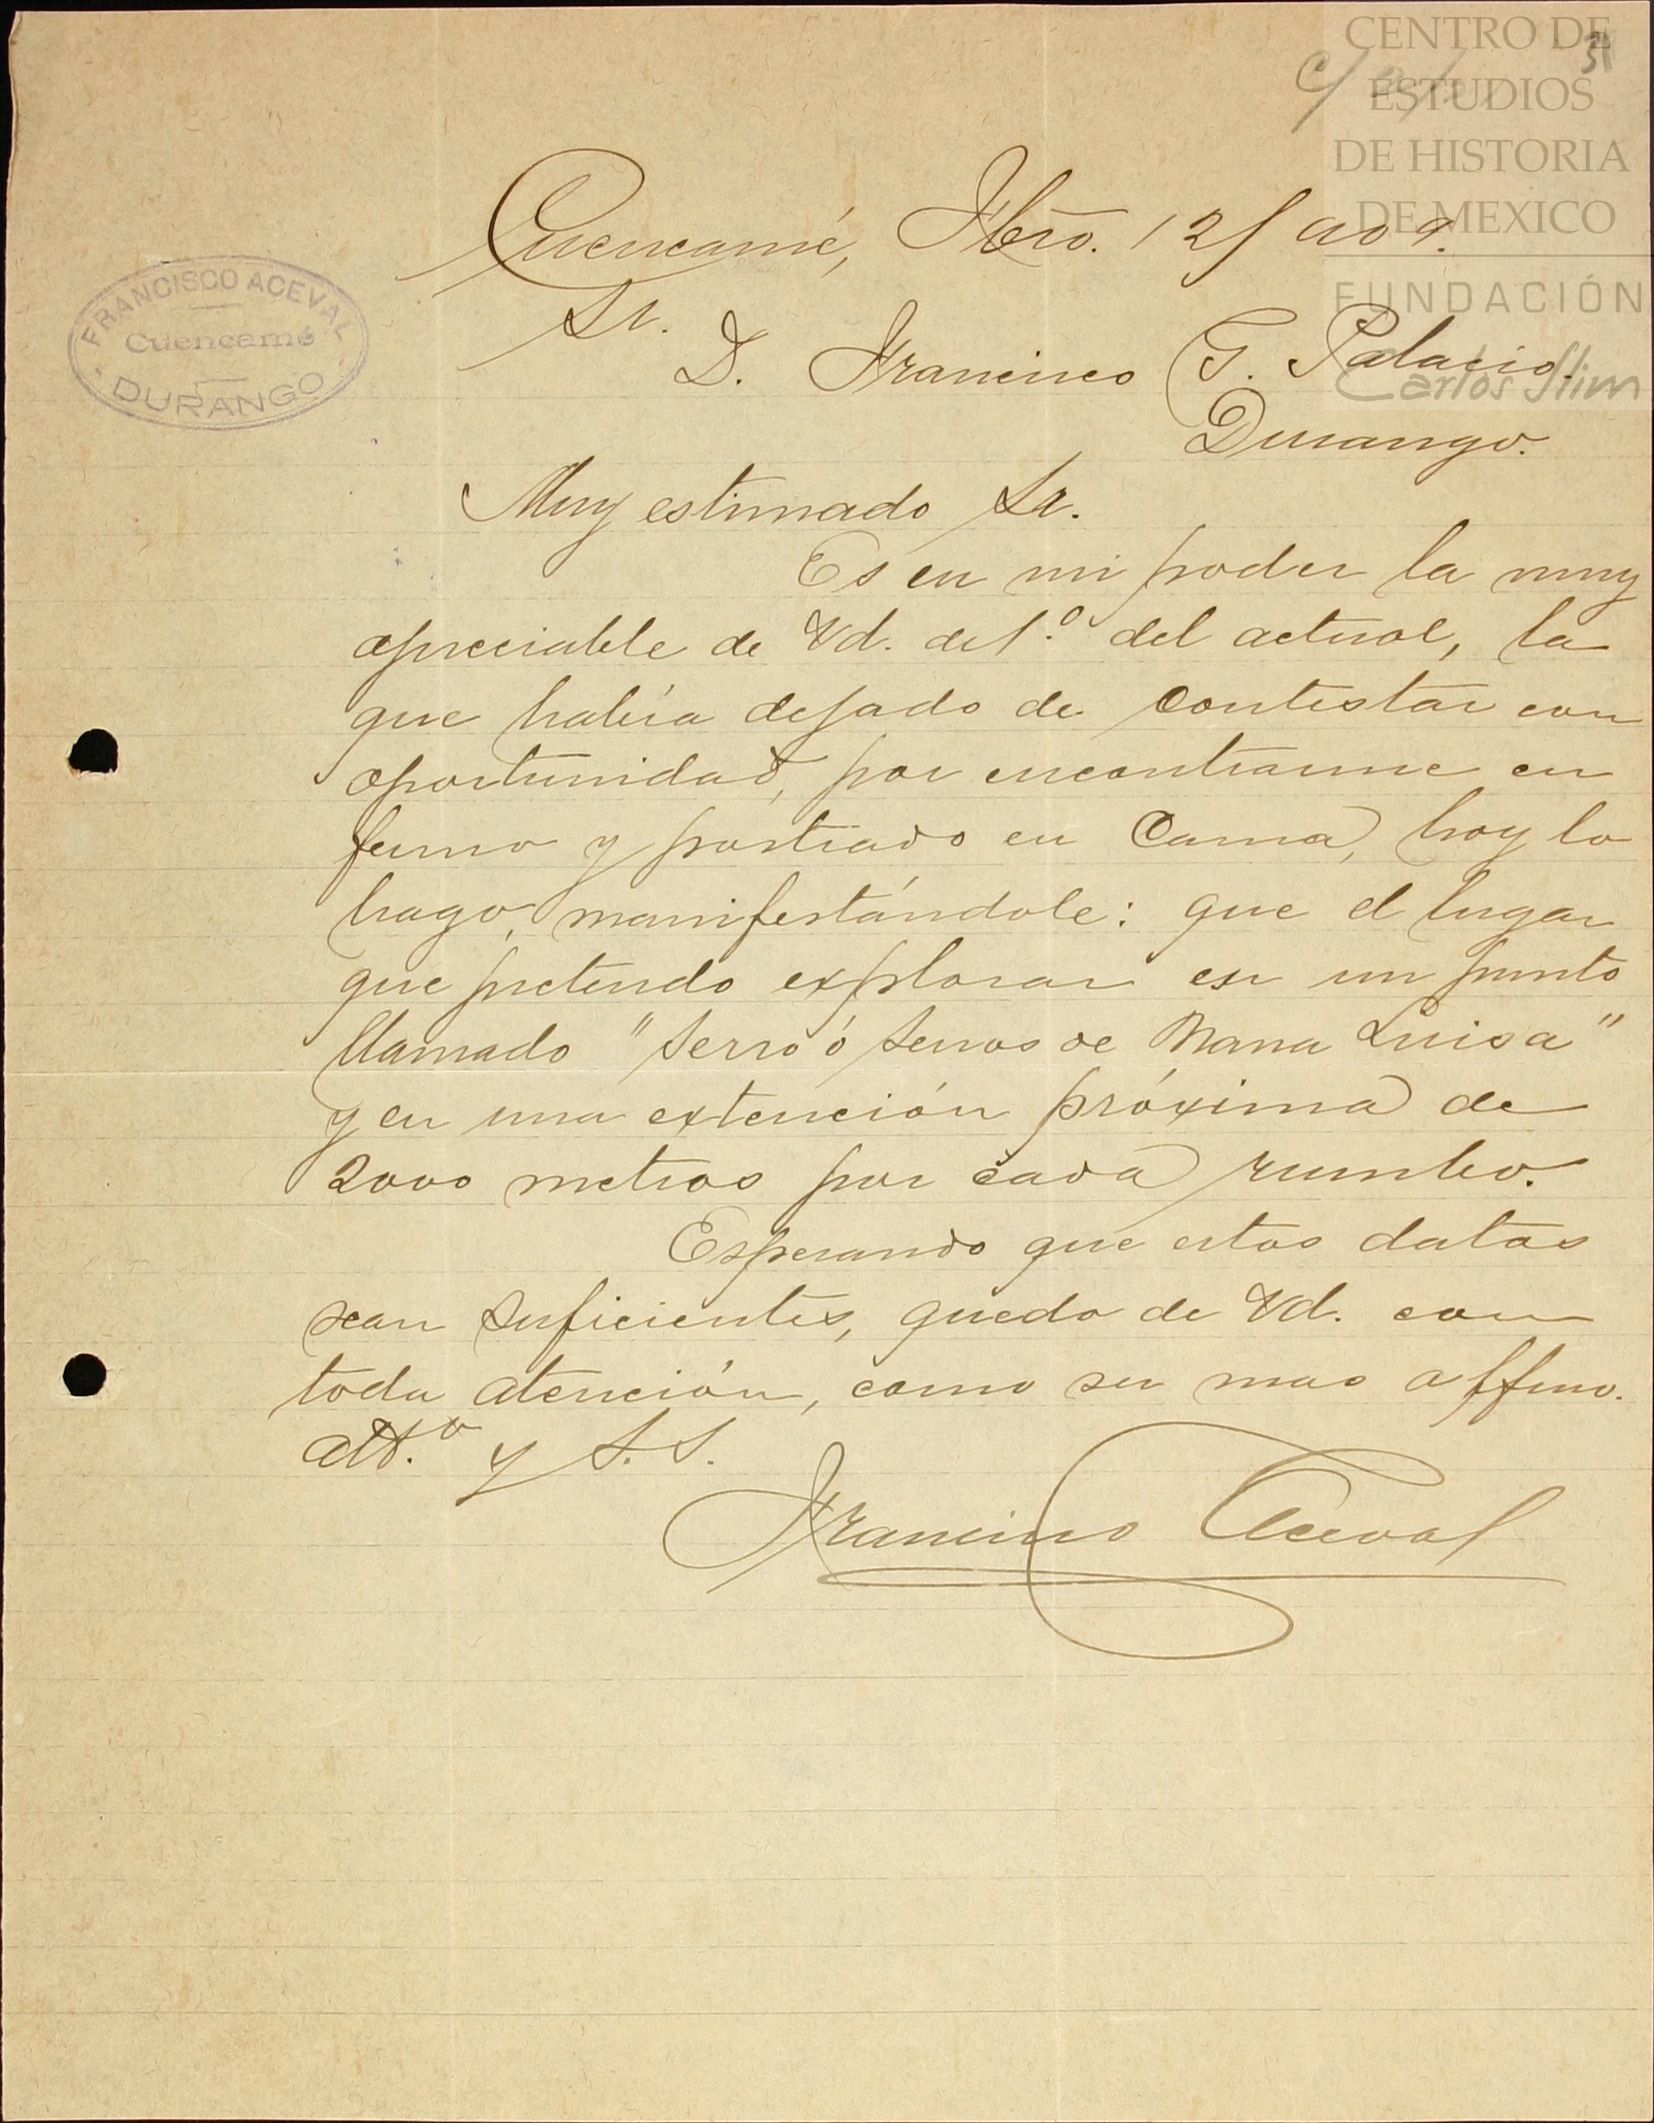 CENTRO DE
ESTUDIOS
DE HISTORIA
DE MEXICO
FUNDACIÓN
Carlos Slim
31
FRANCISCO ACEVAL
Cuencamé
DURANGO
Cuencamé, Fbro. 12/909.
Sr.
D. Francisco G. Palacio.
Durango.
Muy estimado Sr.
Es en mi poder la muy
apreciable de Vd. del 1.º del actual, la
que había dejado de contestar con
oportunidad, por encontrarme en
fermo y postrado en cama, hoy lo
hago, manifestándole: que el lugar
que pretendo explorar es un punto
llamado "Serro ó Serros de Mana Luisa"
y en una extención próxima de
2000 metros por cada rumbo.
Esperando que estos datos
sean suficientes, quedo de Vd. con
toda atención, como su mas affmo.
att.º y S.S.
Francisco Aceval